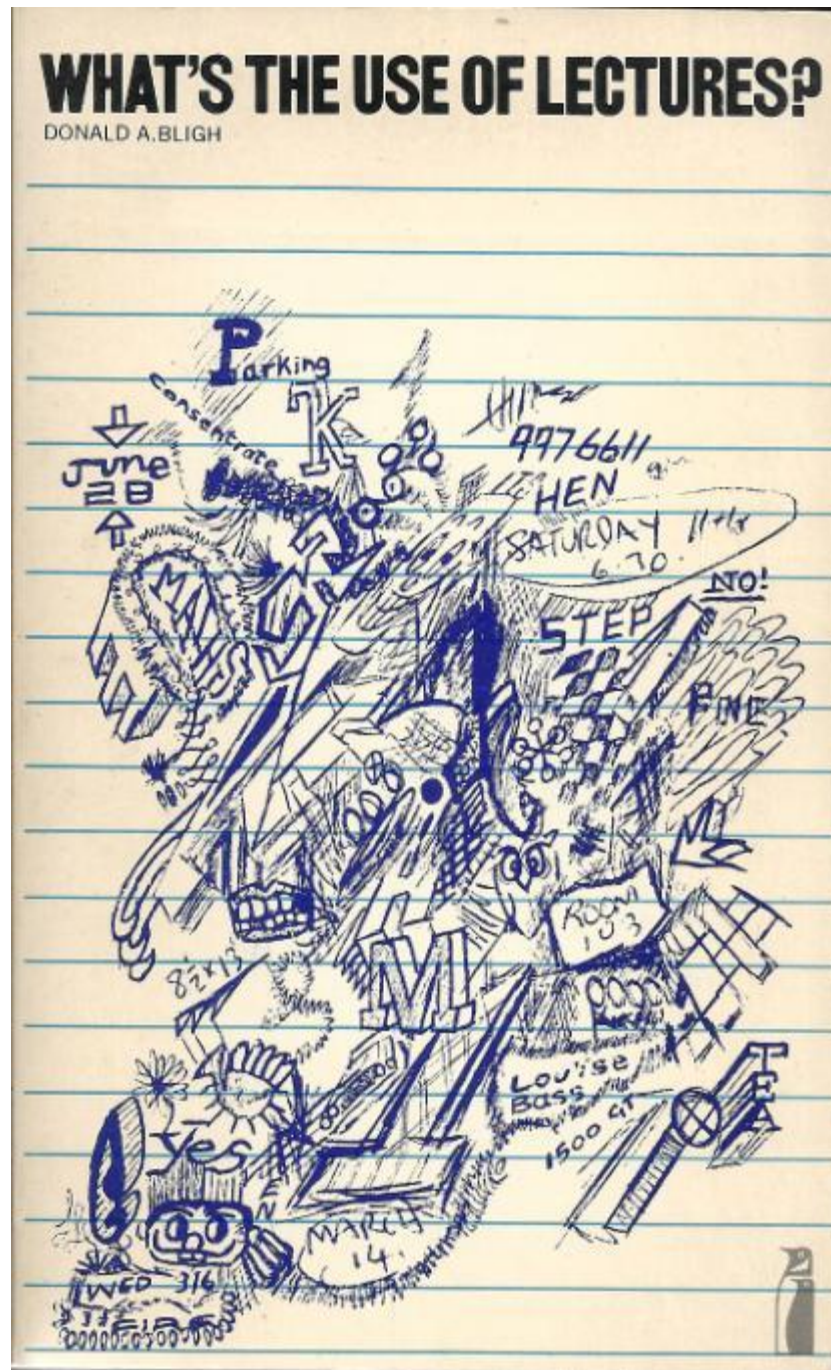 WHAT'S THE USE OF LECTURES?
DONALD A.BLIGH
Parking
Consentrate
K
June
28
9976611
HEN
SATURDAY
6.30.
NO!
STEP
MATHS
FNE
ROOM
103
8½x13
M
Louise
Bass
1500 GT
TEA
Yes
MARCH
14.
WED 3/6